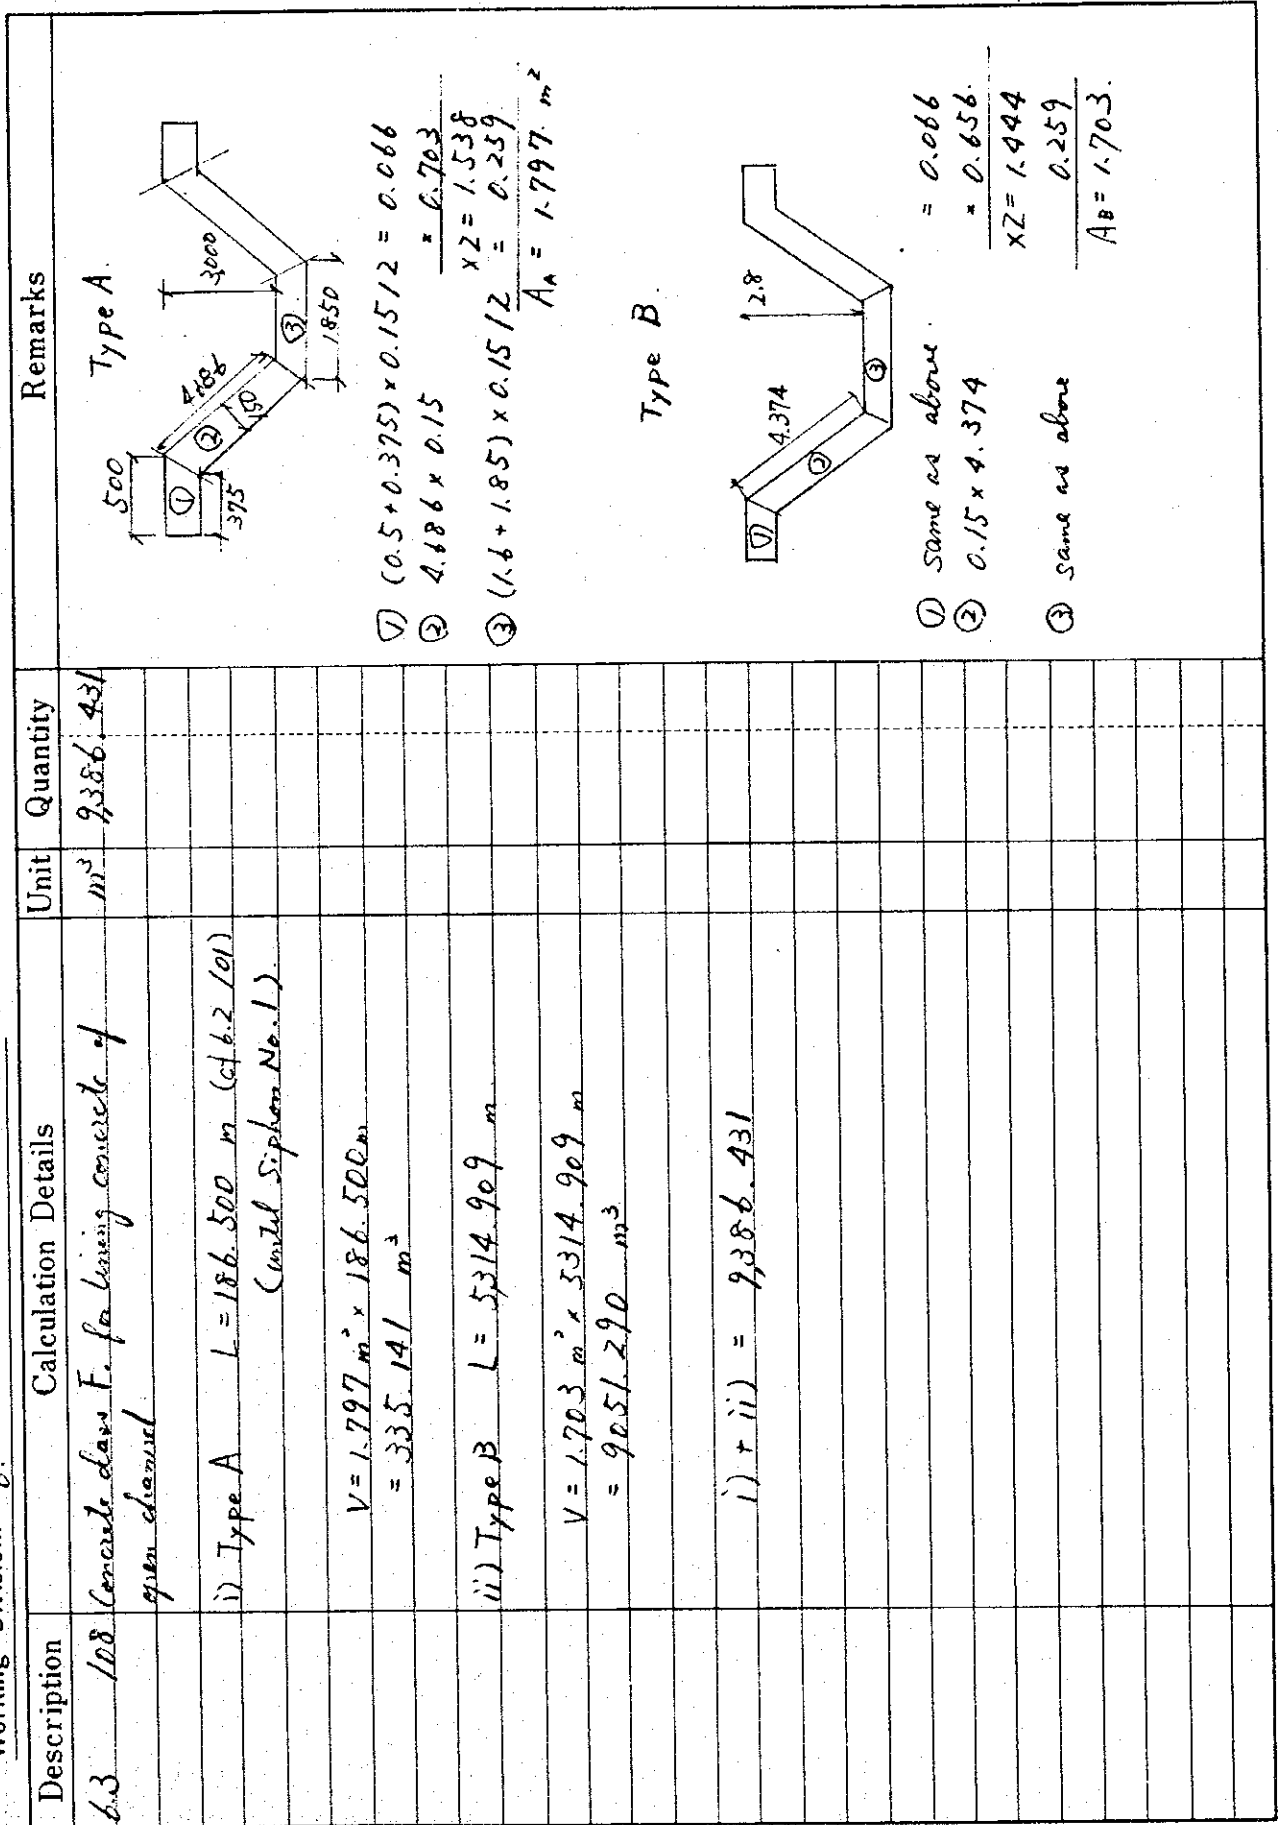 Description Calculation Details Unit Quantity Remarks
6.3 108 Concrete class F. for lining concrete of m³ 9,386.431
open channel
i) Type A L = 186.500 m (cf 6.2 101)
(until Siphon No. 1).
V = 1.797 m² × 186.500 m
= 335.141 m³
ii) Type B L = 5,314.909 m
V = 1.703 m² × 5314.909 m
= 9051.290 m³
i) + ii) = 9,386.431
Type A.
500
①
375
②
4.686
150
3,000
③
1850
① (0.5 + 0.375) × 0.15 1/2 = 0.066
② 4.686 × 0.15 = 0.703
×2 = 1.538
③ (1.6 + 1.85) × 0.15 1/2 = 0.259
A_A = 1.797 m²
Type B.
①
②
4.374
2.8
③
① same as above. = 0.066
② 0.15 × 4.374 = 0.656.
×2 = 1.444
③ same as above 0.259
A_B = 1.703.